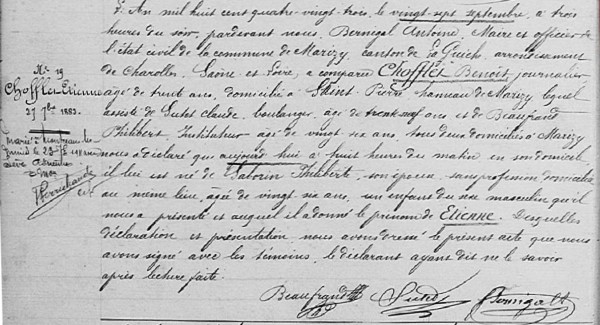 L'An mil huit cent quatre-vingt-trois, le vingt-sept septembre, à trois
heures du soir, pardevant nous, Bernigal Antoine, Maire et officier de
l'état civil de la commune de Marizy, canton de la Guiche, arrondissement
de Charolles, Saône et Loire, a comparu Chofflet Benoît, journalier
âgé de trente ans, domicilié à Saint-Pierre, hameau de Marizy, lequel
assisté de Sutet Claude, boulanger, âgé de trente neuf ans et de Beaufrand
Philibert Instituteur âgé de vingt six ans, tous deux domiciliés à Marizy
nous a déclaré que aujourd'hui à huit heures du matin, en son domicile
il lui est né de Saborin Philiberte, son épouse, sans profession domiciliée
au même lieu, âgée de vingt six ans, un enfant du sexe masculin qu'il
nous a présenté et auquel il a donné le prénom de Etienne. Lesquelles
déclaration et présentation nous avons dressé le présent acte que nous
avons signé avec les témoins, le déclarant ayant dit ne le savoir
après lecture faite.
Beaufrand Sutet Bernigal
N° 19
Chofflet Etienne
27 7bre 1883.
Marié à Montceau-les-